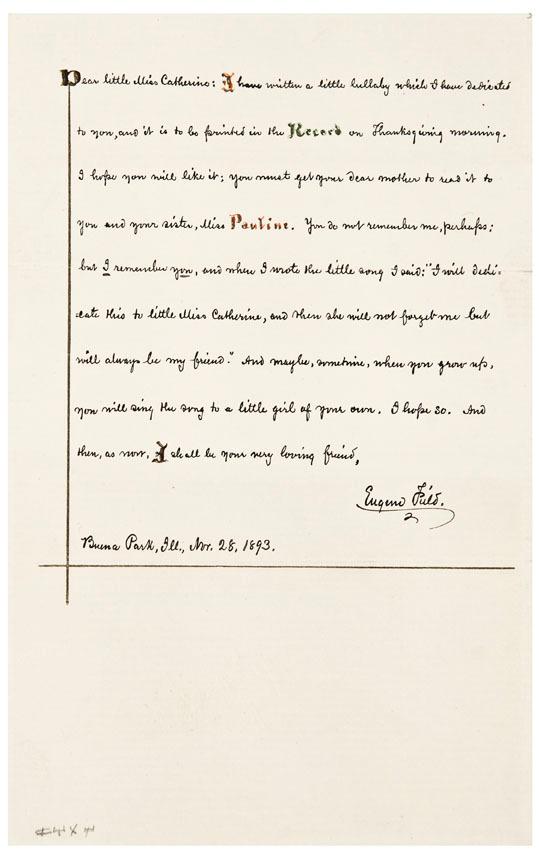 Dear little Miss Catherine: I have written a little lullaby which I have dedicated
to you, and it is to be printed in the Record on Thanksgiving morning.
I hope you will like it; you must get your dear mother to read it to
you and your sister, Miss Pauline. You do not remember me, perhaps;
but I remember you, and when I wrote the little song I said: "I will dedi-
cate this to little Miss Catherine, and then she will not forget me but
will always be my friend." And maybe, sometime, when you grow up,
you will sing the song to a little girl of your own. I hope so. And
then, as now, I shall be your very loving friend,
Eugene Field.
Buena Park, Ill., Nov. 28, 1893.